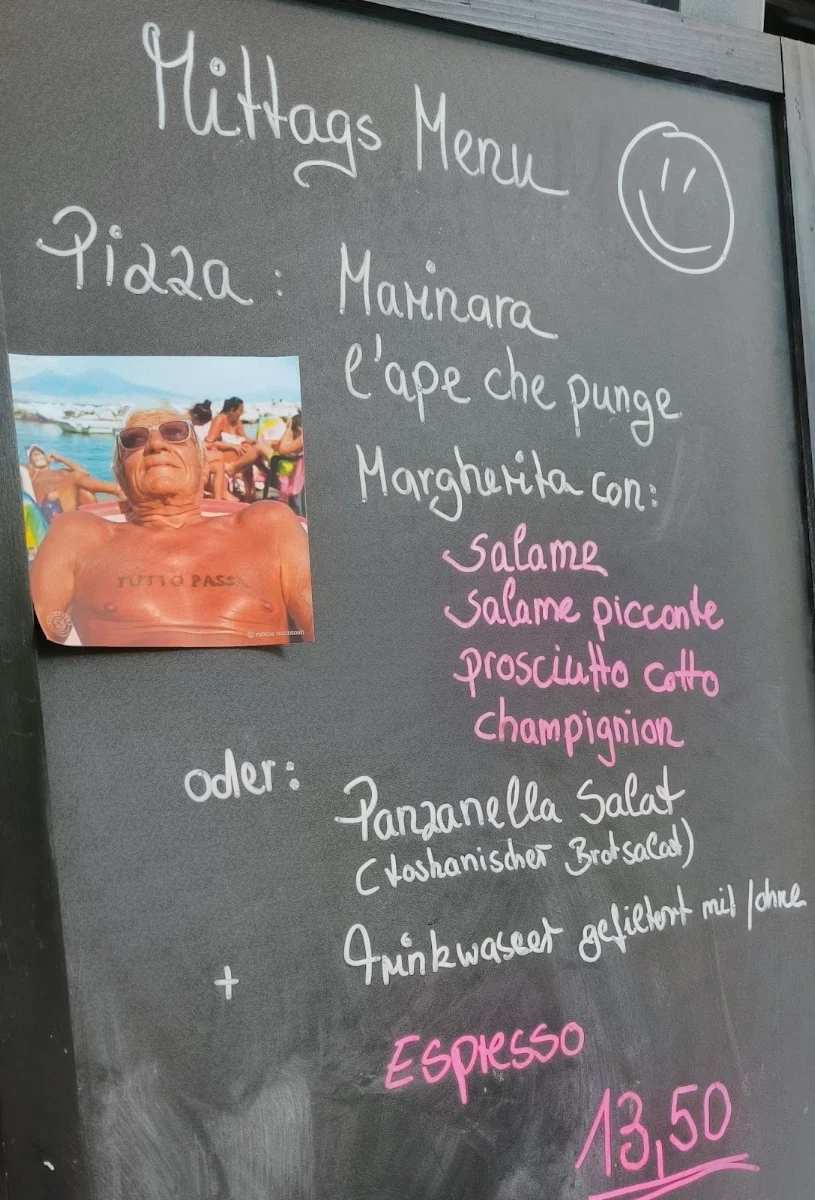 Mittags Menu
Pizza: Marinara
l'ape che punge
Margherita con:
salame
salame picconte
prosciutto cotto
champignion
TUTTO PASSA
oder: Panzanella Salat
(toskanischer Brotsalat)
+ Trinkwasser gefiltert mit/ohne
Espresso
13,50